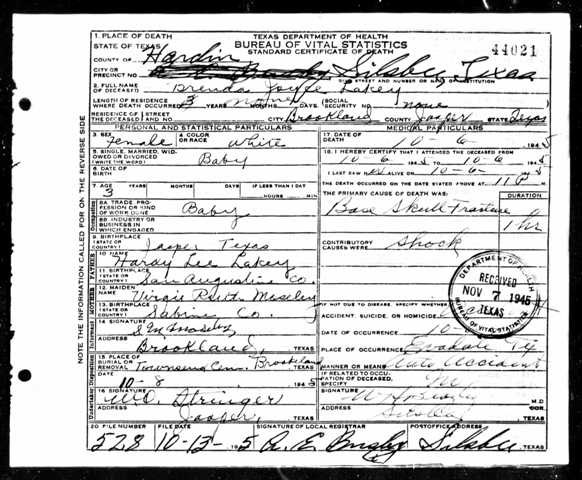 1. PLACE OF DEATH
STATE OF TEXAS
TEXAS DEPARTMENT OF HEALTH
BUREAU OF VITAL STATISTICS
STANDARD CERTIFICATE OF DEATH
44021
COUNTY OF Hardin
CITY OR PRECINCT NO. Silsbee, Texas
2. FULL NAME OF DECEASED Brenda Joyce Lakey
LENGTH OF RESIDENCE WHERE DEATH OCCURRED 3 YEARS MONTHS DAYS (SOCIAL SECURITY NO. none
RESIDENCE OF THE DECEASED CITY Brookland COUNTY Jasper STATE Texas
PERSONAL AND STATISTICAL PARTICULARS
MEDICAL PARTICULARS
3. SEX Female 4. COLOR OR RACE White
17. DATE OF DEATH 10-6 1945
5. SINGLE, MARRIED, WIDOWED OR DIVORCED (WRITE THE WORD) Baby
18. I HEREBY CERTIFY THAT I ATTENDED THE DECEASED FROM
10-6 1945 10-6 1945
6. DATE OF BIRTH
I LAST SAW ALIVE ON 10-6- 1945
7. AGE YEARS MONTHS DAYS IF LESS THAN 1 DAY
3 HOURS MIN.
THE DEATH OCCURRED ON THE DATE STATED ABOVE AT
THE PRIMARY CAUSE OF DEATH WAS: DURATION
8A TRADE, PROFESSION OR KIND OF WORK DONE Baby
Base Skull Fracture 1 hr
8B INDUSTRY OR BUSINESS IN WHICH ENGAGED
9. BIRTHPLACE (STATE OR COUNTRY) Jasper Texas
CONTRIBUTORY CAUSES Shock
10. NAME Hardy Lee Lakey
11. BIRTHPLACE (STATE OR COUNTRY) San Augustine Co.
12. MAIDEN NAME Virgie Ruth Moseley
13. BIRTHPLACE (STATE OR COUNTRY) Sabine Co.
IF NOT DUE TO DISEASE, SPECIFY WHETHER
ACCIDENT, SUICIDE, OR HOMICIDE
14. SIGNATURE
DATE OF OCCURRENCE 10-
ADDRESS Brookland TEXAS
PLACE OF OCCURRENCE
15. PLACE OF BURIAL OR REMOVAL Townsend Cem. Brookeland TEXAS
MANNER OR MEANS Auto Accident
10-8 1945
IF RELATED TO OCCUPATION OF DECEASED, SPECIFY
16. SIGNATURE Stringer
SIGNATURE M.D.
ADDRESS Jasper, TEXAS
ADDRESS TEXAS
20. FILE NO. FILE DATE SIGNATURE OF LOCAL REGISTRAR POSTOFFICE ADDRESS
528 10-13- 1945 Silsbee TEXAS
DEPARTMENT OF HEALTH
RECEIVED
NOV 7 1945
TEXAS
BUREAU OF VITAL STATISTICS
NOTE THE INFORMATION CALLED FOR ON THE REVERSE SIDE
Occupation
FATHER
MOTHER
Informant
Undertaker Disposition